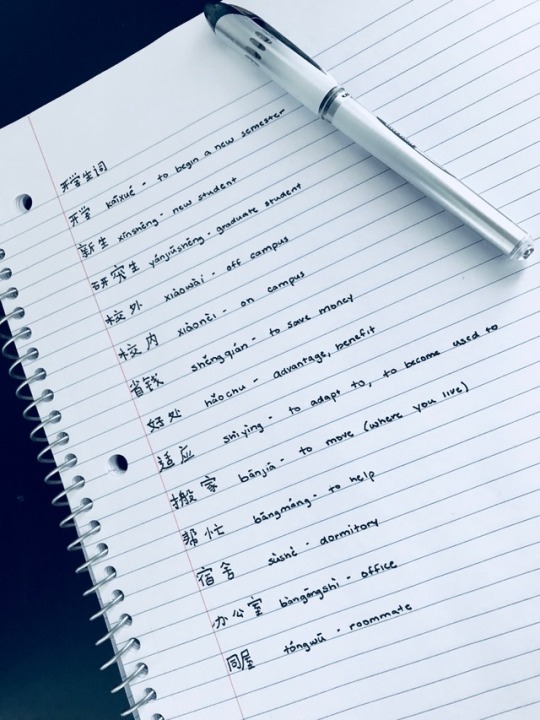 开学生词
开学 kāixué - to begin a new semester
新生 xīnshēng - new student
研究生 yánjiūshēng - graduate student
校外 xiàowài - off campus
校内 xiàonèi - on campus
省钱 shěngqián - to save money
好处 hǎochu - advantage, benefit
适应 shìyìng - to adapt to, to become used to
搬家 bānjiā - to move (where you live)
帮忙 bāngmáng - to help
宿舍 sùshè - dormitory
办公室 bàngōngshì - office
同屋 tóngwū - roommate